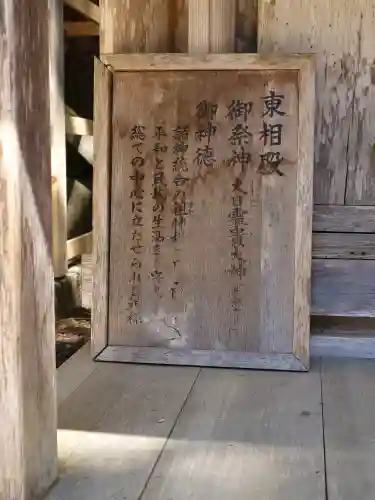 東相殿
御祭神 大日孁貴大神
御神徳
諸神統合の祖神
平和と民族の生活を守り
総ての中心に立たせられる神